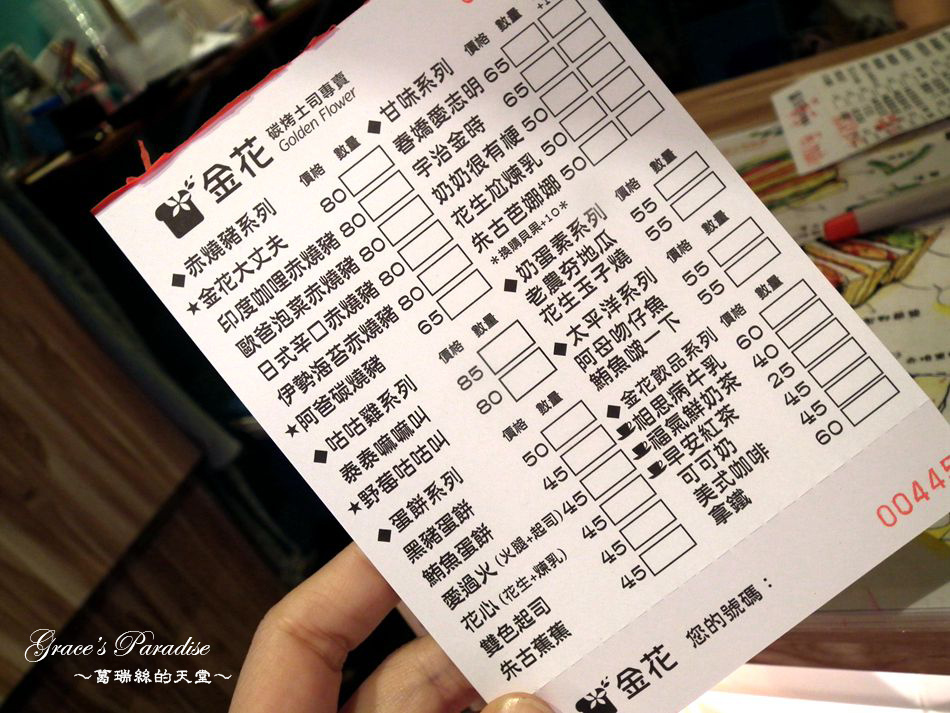 金花 碳烤土司專賣
Golden Flower
◆赤燒豬系列 價格 數量
★金花大丈夫 80
印度咖哩赤燒豬 80
歐爸泡菜赤燒豬 80
日式辛□赤燒豬 80
伊勢海苔赤燒豬 80
★阿爸碳燒豬 65
◆咕咕雞系列 價格 數量
泰泰嘛嘛叫 85
★野莓咕咕叫 80
◆蛋餅系列 價格 數量
黑豬蛋餅 50
鮪魚蛋餅 45
愛過火(火腿+起司) 45
花心(花生+煉乳) 45
雙色起司 45
朱古蕉蕉 45
◆甘味系列 價格 數量
春嬌愛志明 65
宇治金時 65
奶奶很有梗 50
花生尬煉乳 50
朱古芭娜娜 50
*換購貝果+10*
◆奶蛋素系列 價格 數量
老農夯地瓜 55
花生玉子燒 55
◆太平洋系列 價格 數量
阿母吻仔魚 55
鮪魚啵一下 55
◆金花飲品系列 價格 數量
相思病牛乳 60
福氣鮮奶茶 40
早安紅茶 25
可可奶 45
美式咖啡 45
拿鐵 60
0044
金花 您的號碼：
Grace's Paradise
～葛瑞絲的天堂～